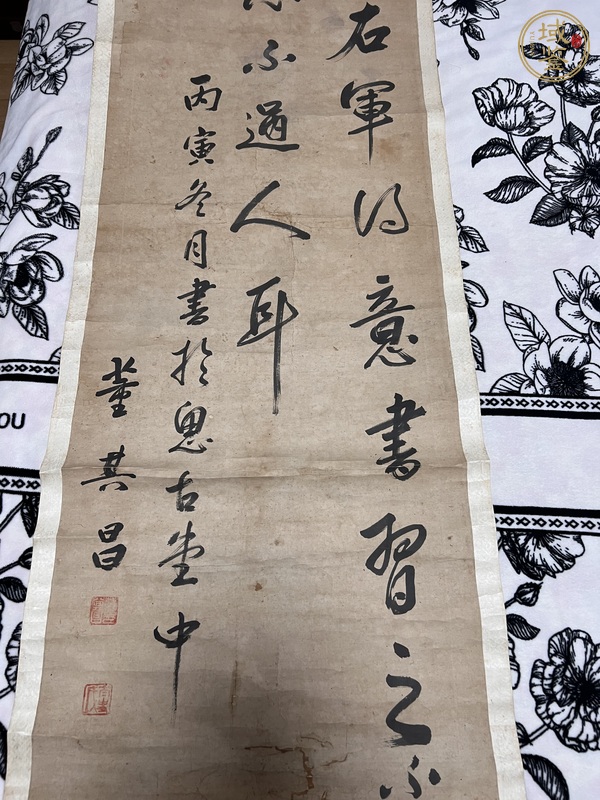 右軍得意書習之不
不道人耳
丙寅冬月書於思古堂中
董其昌
OU
域鉴